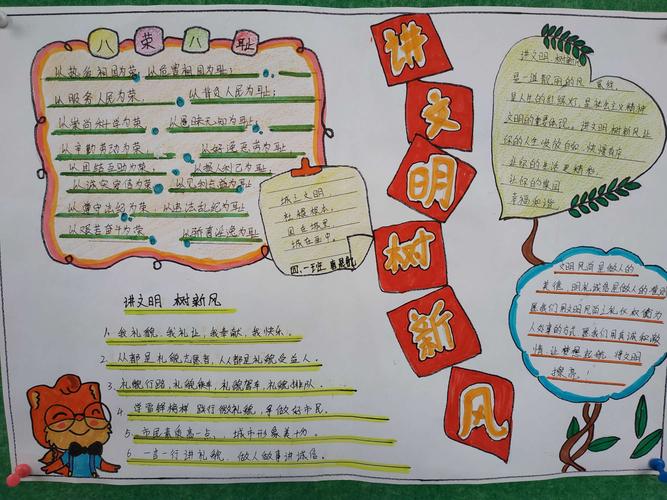 八荣八耻
以热爱祖国为荣,以危害祖国为耻;
以服务人民为荣,以背负人民为耻;
以崇尚科学为荣,以愚昧无知为耻;
以辛勤劳动为荣,以好逸恶劳为耻;
以团结互助为荣,以损人利己为耻;
以诚实守信为荣,以见利忘义为耻;
以遵守法纪为荣,以违法乱纪为耻;
以艰苦奋斗为荣,以骄奢淫逸为耻
城之文明
社稷根本,
国在城里
城在画中。
四.一班
讲文明树新风
讲文明 树新风
1. 我礼貌,我礼让,我奉献,我快乐。
2. 人都是礼貌志愿者,人人都是礼貌受益人。
3. 礼貌行路,礼貌乘车,礼貌驾车,礼貌排队
4. 学雷锋榜样 践行微礼貌,争做好市民
5. 市民素质高一点,城市形象美十分。
6. 一言一行讲礼貌 做人做事讲诚信。
讲文明 树新风
是一道靓丽的风景线
是人生的红绿灯,是社会主义精神
文明的重要体现。讲文明树新风让
你的人生
让你的生活更精彩
让你的家园
幸福和谐
文明风尚是做人的
美德,明礼诚信是做人的准则
愿我们用文明风尚之礼仪权衡为
人处事的方式 愿我们用真诚和激
情,让梦想起航,将文明
擦亮。